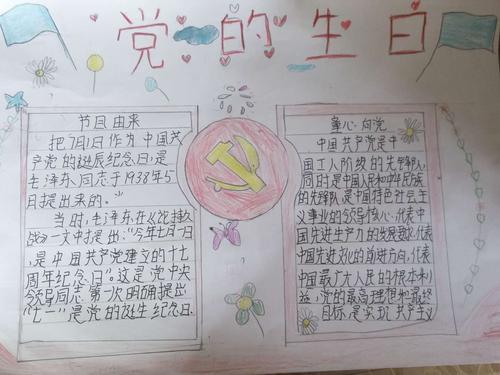 党的生日
节日由来
把7月1日作为中国共
产党的诞辰纪念日,是
毛泽东同志于1938年5
日提出来的。
当时,毛泽东在《论持久
战》一文中提出:"今年七月一日
是中国共产党建立的十七
周年纪念日"这是党中央
领导同志第一次明确提出
"七一"是党的诞生纪念日.
童心向党
中国共产党是中
国工人阶级的先锋队,
同时是中国人民和中华民族
的先锋队,是中国特色社会主
义事业的领导核心,代表中
国先进生产力的发展要求,代表
中国先进文化的前进方向,代表
中国最广大人民的根本利
益,党的最高理想和最终
目标是实现共产主义